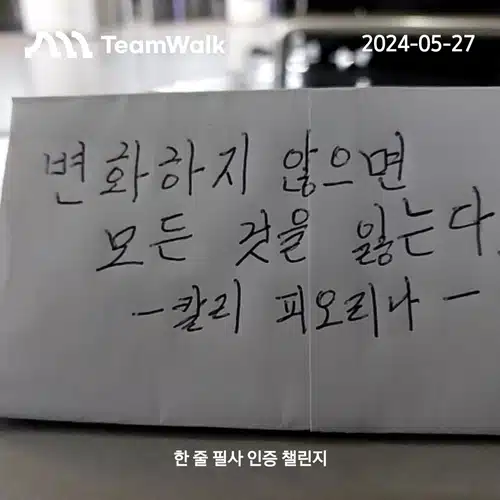 TeamWalk
2024-05-27
변화하지 않으면
모든 것을 잃는다.
-칼리 피오리나-
한 줄 필사 인증 챌린지